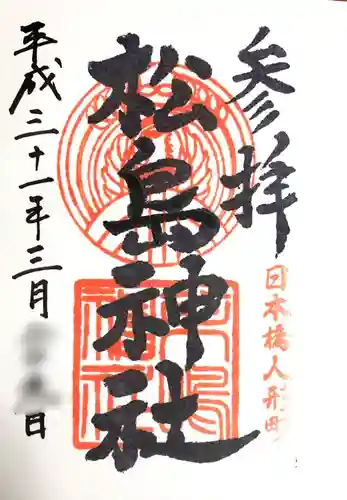 参拝
日本橋人形町
松島神社
平成三十一年三月 日